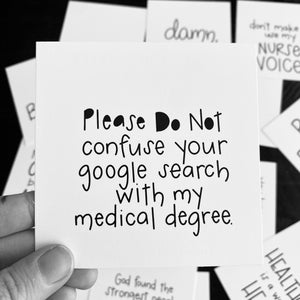 damn,
don't make
use my
NURSE
VOICE
Please Do Not
confuse your
google search
with my
medical degree.
God found the
strongest
HEALTH
is a
HE